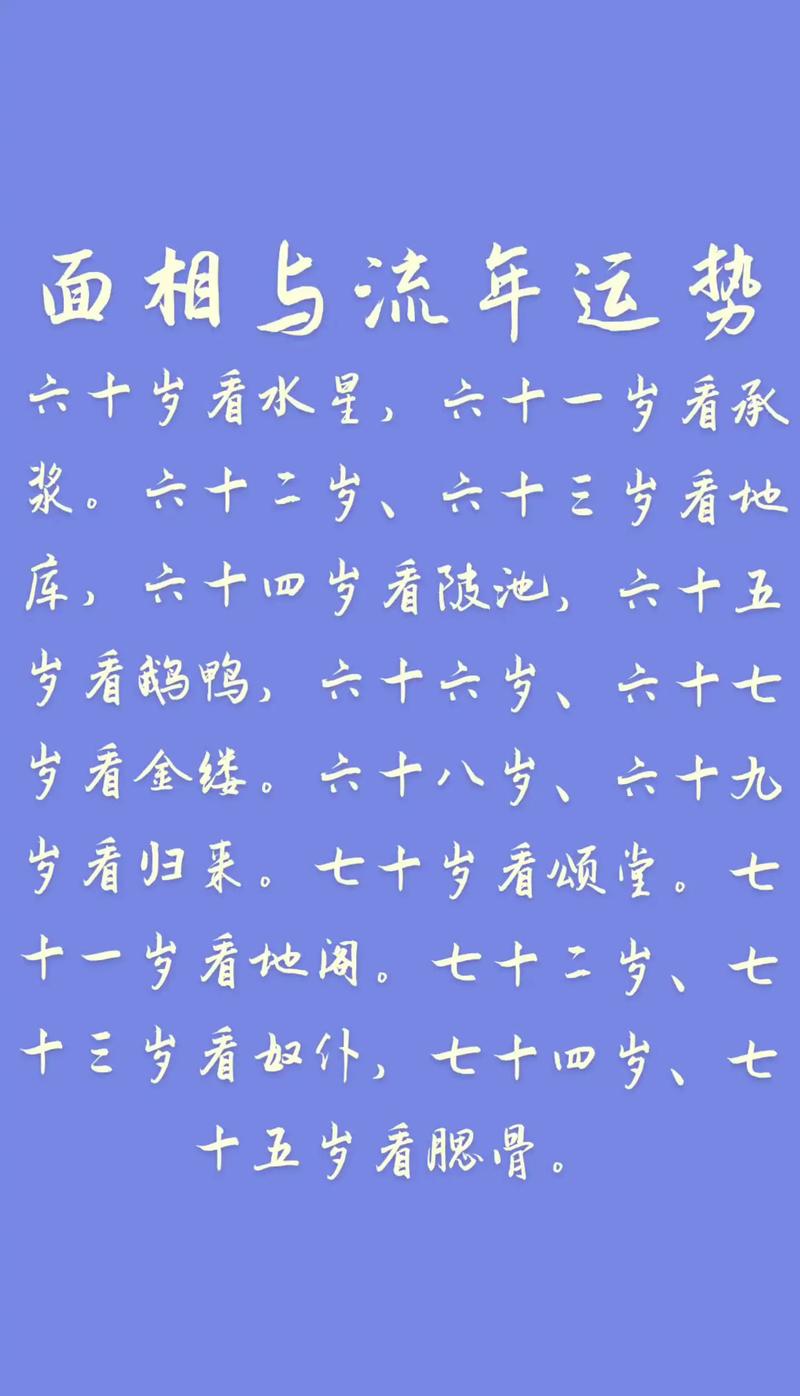 面相与流年运势
六十岁看水星，六十一岁看承
浆。六十二岁、六十三岁看地
库，六十四岁看陂池，六十五
岁看鹅鸭，六十六岁、六十七
岁看金缕。六十八岁、六十九
岁看归来。七十岁看颂堂。七
十一岁看地阁。七十二岁、七
十三岁看奴仆，七十四岁、七
十五岁看腮骨。